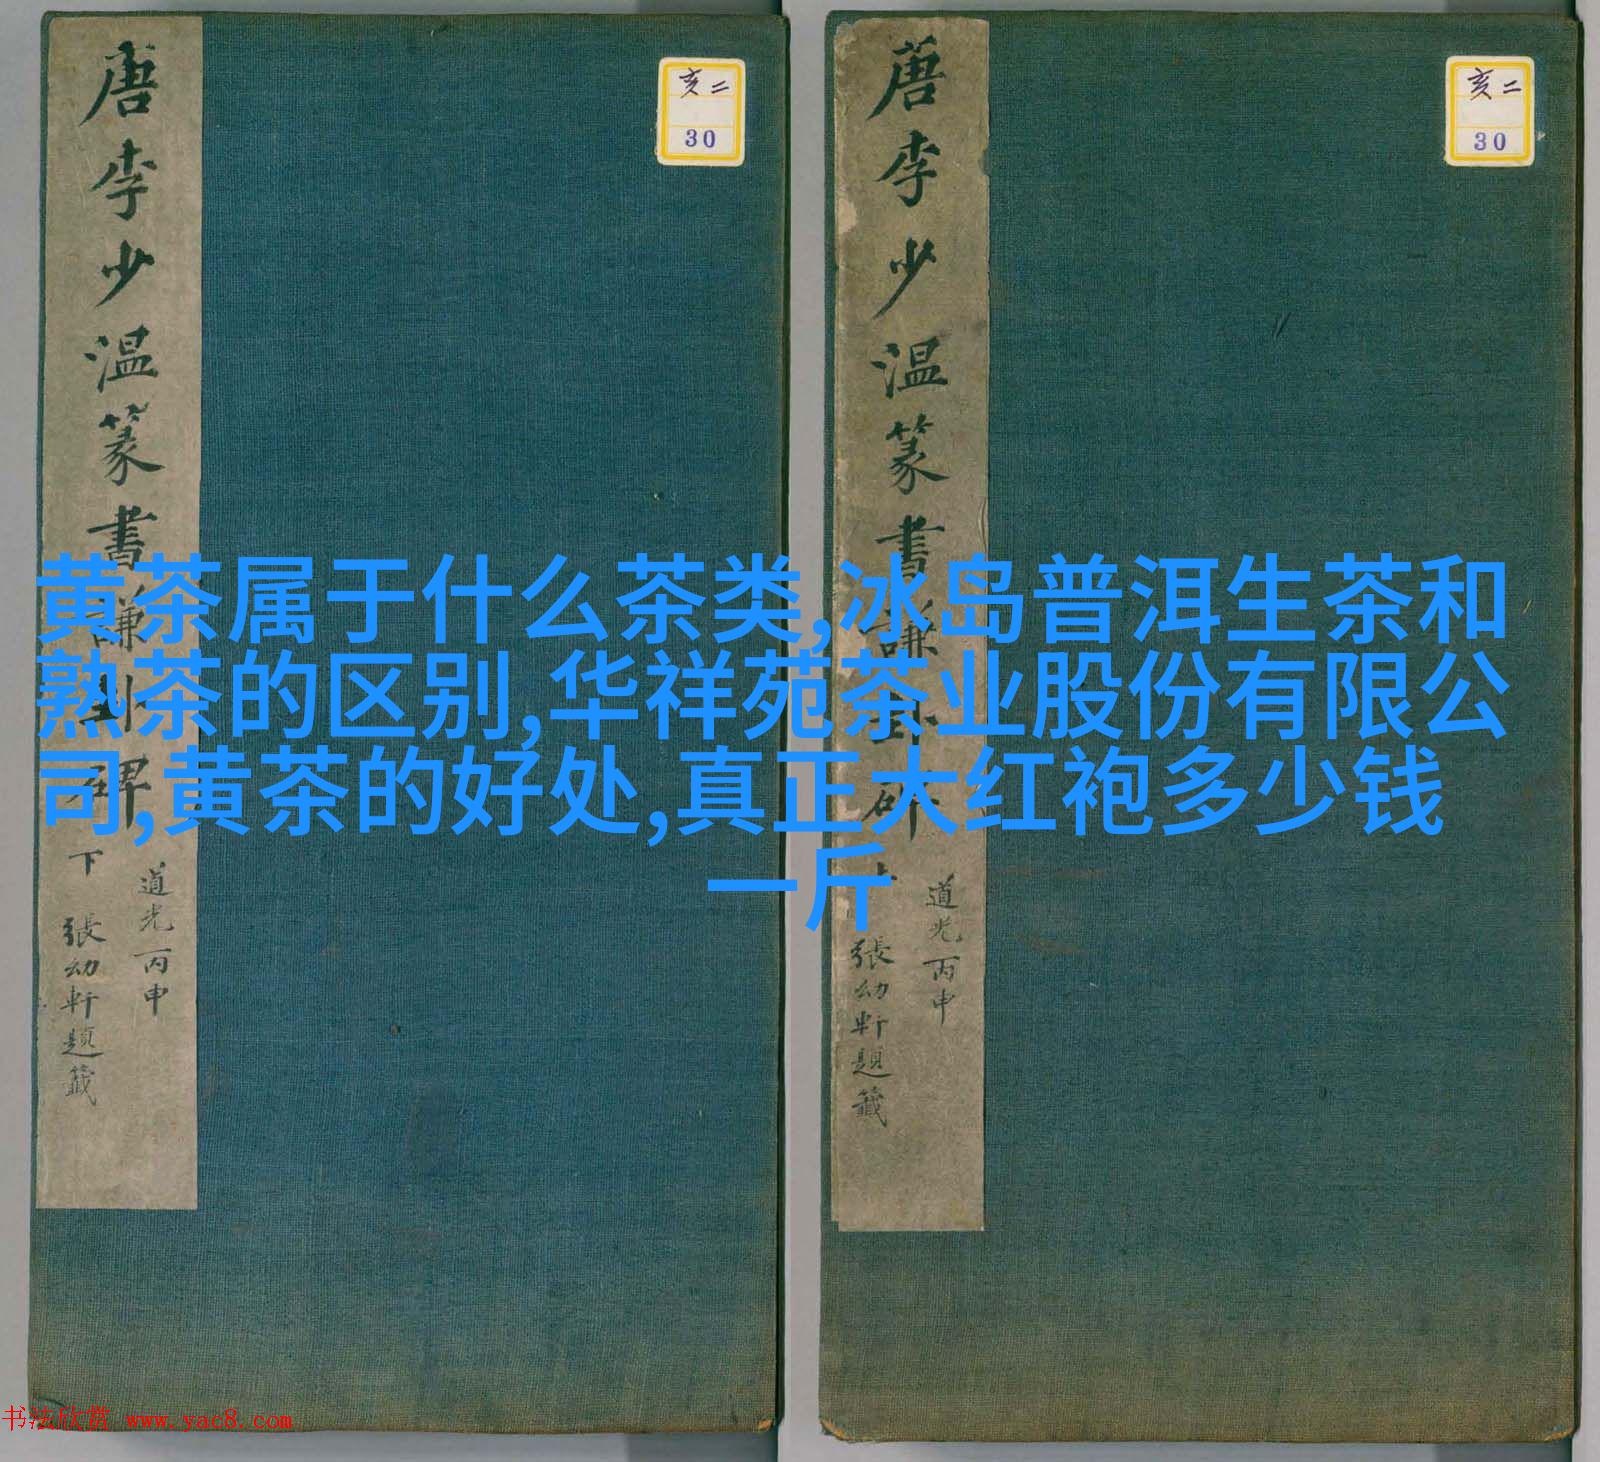 唐李少温篆書謙卦碑
下
道光丙申
張幼軒題籤
亥二
30
唐李少温篆書謙卦碑
上
道光丙申
張幼軒題籤
亥二
30
黄茶属于什么茶类,冰岛普洱生茶和
熟茶的区别,华祥苑茶业股份有限公
司,黄茶的好处,真正大红袍多少钱
一斤
书法欣赏 www.yac8.com